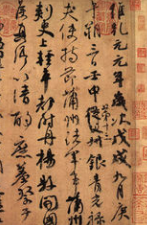 維乾元元年歲次戊戌九月庚
午朔三日壬申第十三叔銀青光祿
夫使持節蒲州諸軍事蒲州
刺史上輕車都尉丹楊縣開國
侯真卿以清酌庶羞祭于